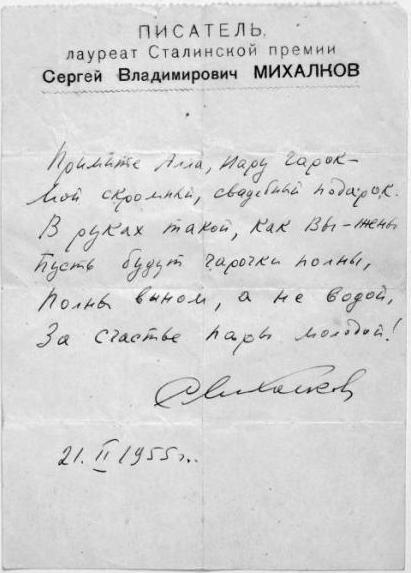 ПИСАТЕЛЬ,
лауреат Сталинской премии
Сергей Владимирович МИХАЛКОВ
Примите Алла, пару чарок—
Мой скромный, свадебный подарок.
В руках такой, как Вы—жены
Пусть будут чарочки полны,
Полны вином, а не водой,
За счастье пары молодой!
СМихалков
21. II 1955 г.